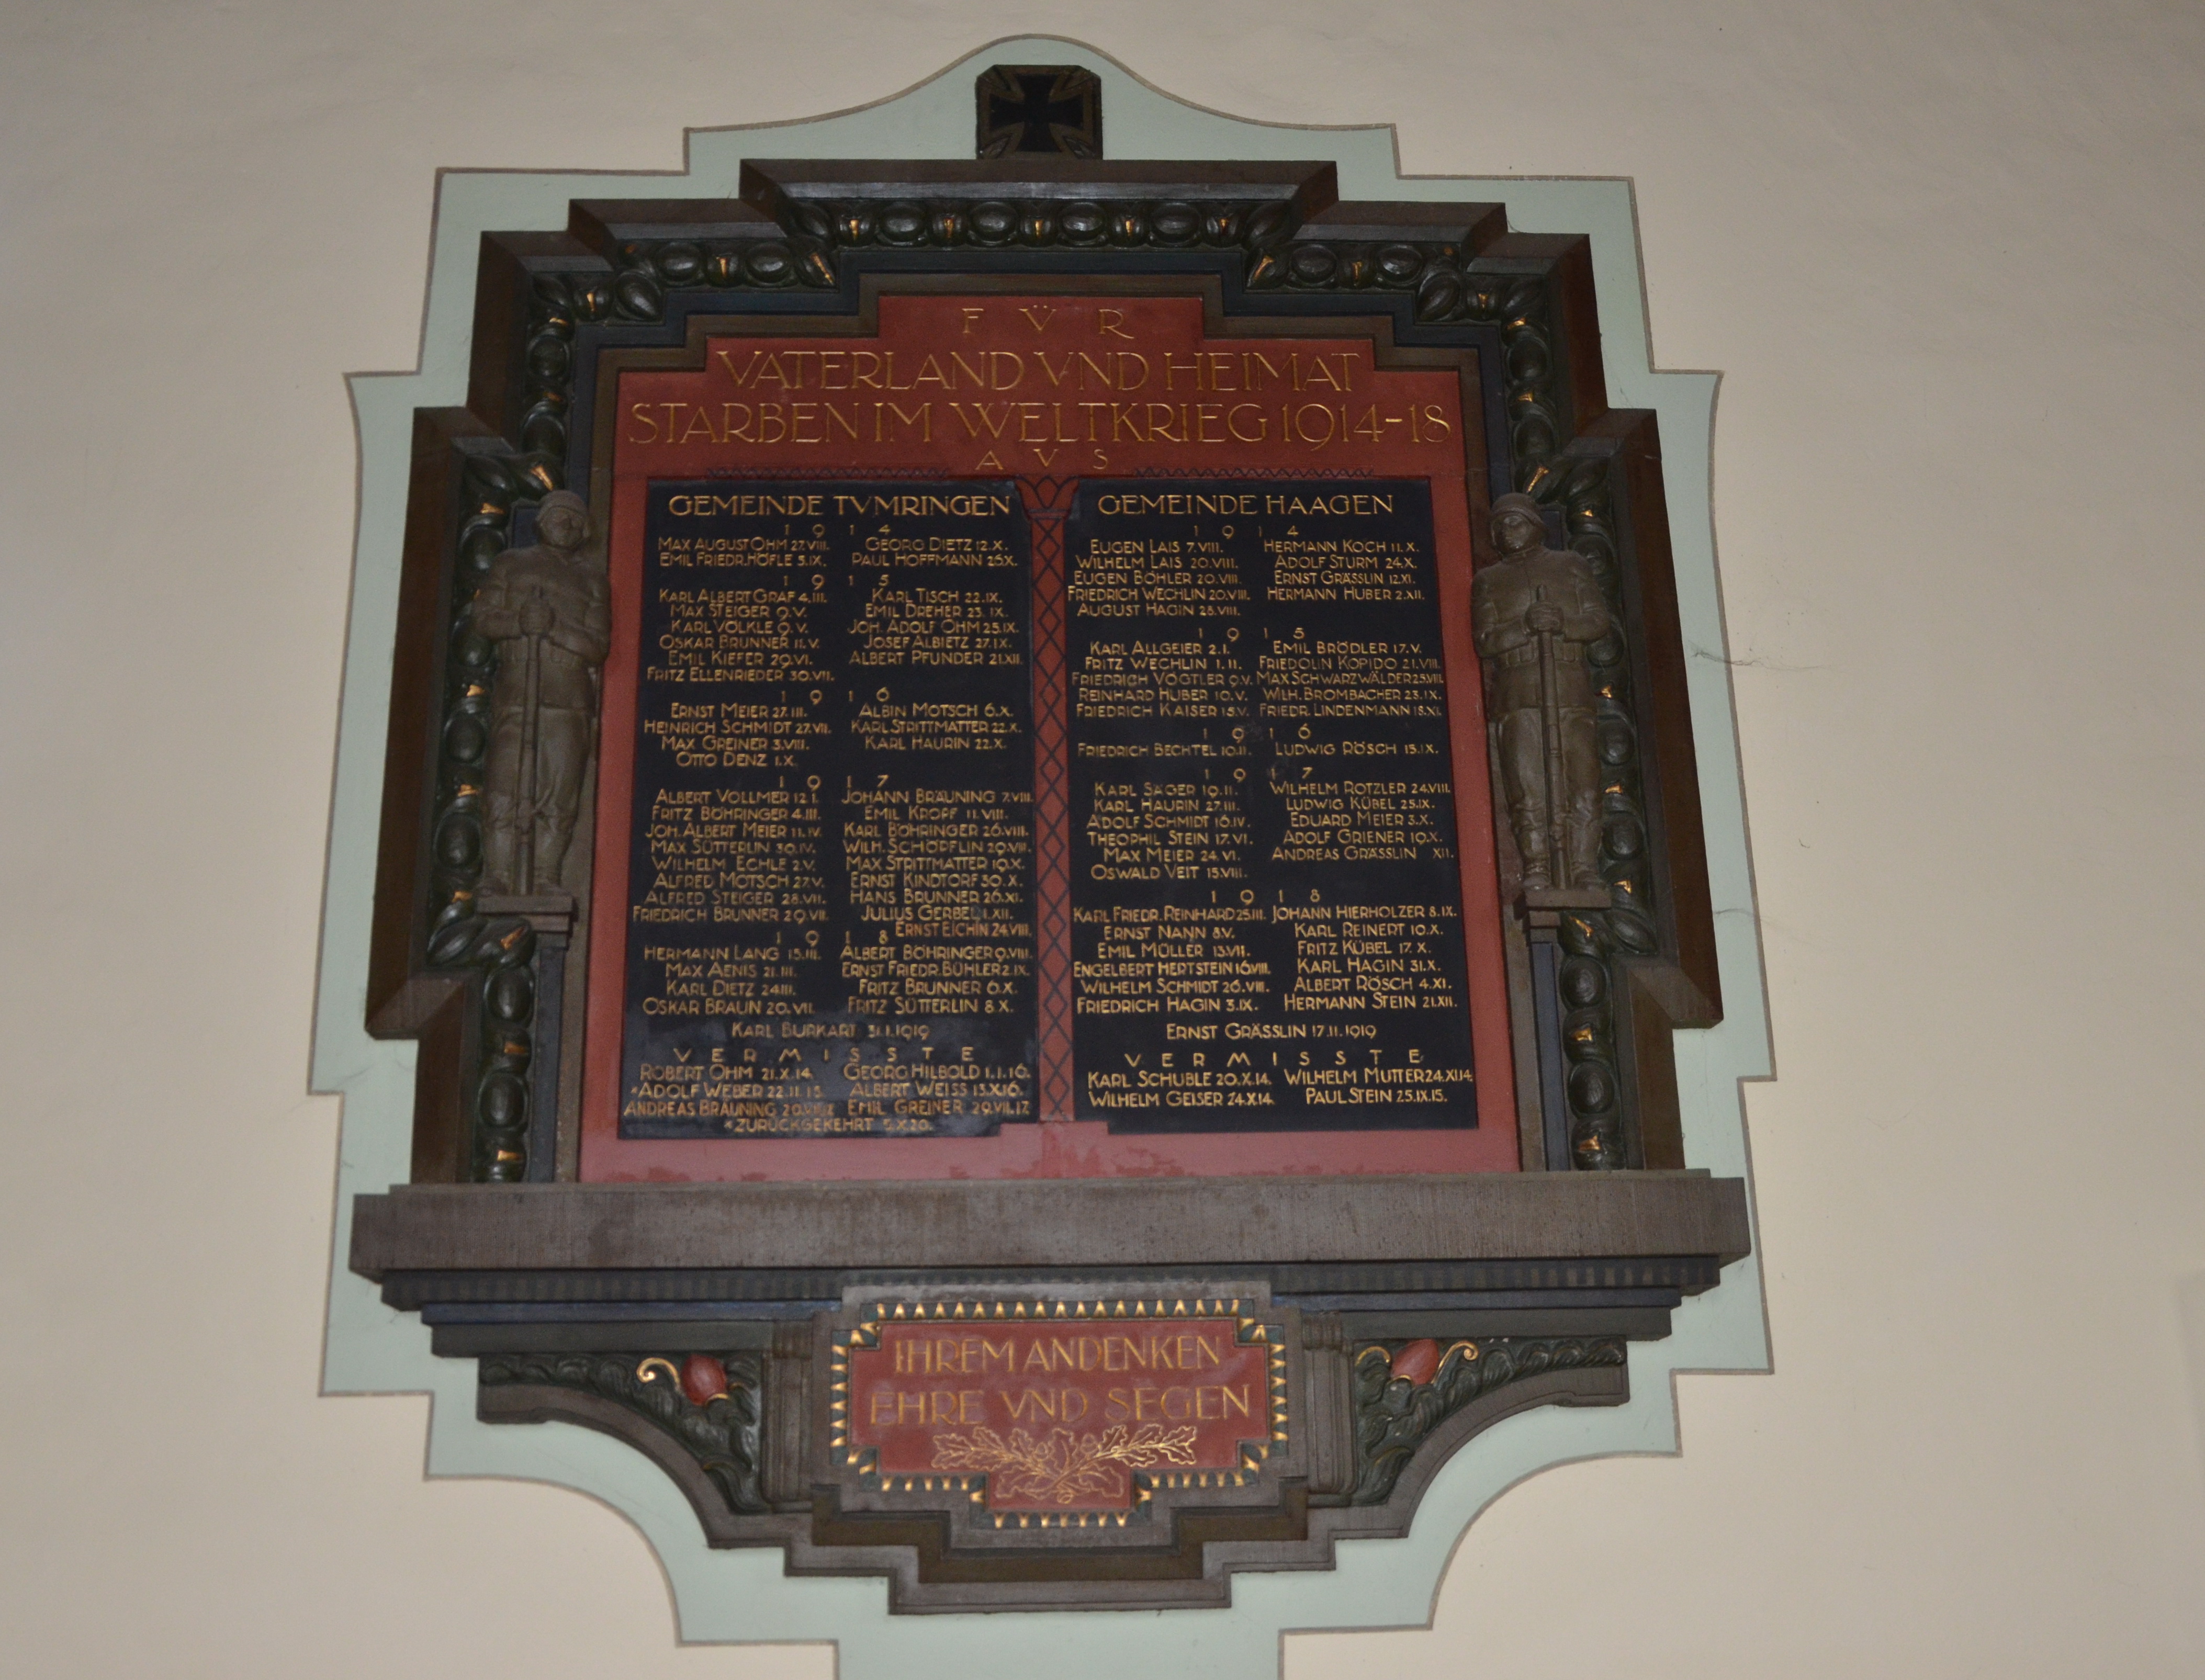 FÜR
VATERLAND VND HEIMAT
STARBEN IM WELTKRIEG 1914-18
AVS
GEMEINDE TVMRINGEN
1914
MAX AUGUST OHM 27.VIII. GEORG DIETZ 12.X.
EMIL FRIEDR. HÖFLE 5.IX. PAUL HOFFMANN 26.X.
1915
KARL ALBERT GRAF 4.III. KARL TISCH 22.IX.
MAX STEIGER 9.V. EMIL DREHER 23.IX.
KARL VÖLKLE 9.V. JOH. ADOLF OHM 25.IX.
OSKAR BRUNNER 11.V. JOSEF ALBIETZ 27.IX.
EMIL KIEFER 29.VI. ALBERT PFUNDER 21.XII.
FRITZ ELLENRIEDER 30.VII.
1916
ERNST MEIER 27.III. ALBIN MOTSCH 6.X.
HEINRICH SCHMIDT 27.VII. KARL STRITTMATTER 22.X.
MAX GREINER 3.VIII. KARL HAURIN 22.X.
OTTO DENZ 1.X.
1917
ALBERT VOLLMER 12.I. JOHANN BRÄUNING 7.VIII.
FRITZ BÖHRINGER 4.III. EMIL KROPF 11.VIII.
JOH. ALBERT MEIER 11.IV. KARL BÖHRINGER 26.VIII.
MAX SÜTTERLIN 30.IV. WILH. SCHÖPFLIN 29.VIII.
WILHELM ECHLE 2.V. MAX STRITTMATTER 19.X.
ALFRED MOTSCH 27.V. ERNST KINDTORF 30.X.
ALFRED STEIGER 28.VII. HANS BRUNNER 26.XI.
FRIEDRICH BRUNNER 29.VII. JULIUS GERBEL 1.XII.
ERNST EICHIN 24.VIII.
1918
HERMANN LANG 15.III. ALBERT BÖHRINGER 9.VIII.
MAX AENIS 21.III. ERNST FRIEDR. BÜHLER 2.IX.
KARL DIETZ 24.III. FRITZ BRUNNER 6.X.
OSKAR BRAUN 20.VII. FRITZ SÜTTERLIN 8.X.
KARL BURKART 31.1.1919
VERMISSTE
ROBERT OHM 21.X.14. GEORG HILBOLD 1.1.16.
*ADOLF WEBER 22.11.15. ALBERT WEISS 13.X.16.
ANDREAS BRÄUNING EMIL GREINER 29.VII.17.
*ZURÜCKGEKEHRT 5.X.20.
GEMEINDE HAAGEN
1914
EUGEN LAIS 7.VIII. HERMANN KOCH 11.X.
WILHELM LAIS 20.VIII. ADOLF STURM 24.X.
EUGEN BÖHLER 20.VIII. ERNST GRÄSSLIN 12.XI.
FRIEDRICH WECHLIN 20.VIII. HERMANN HUBER 2.XII.
AUGUST HAGIN 28.VIII.
1915
KARL ALLGEIER 2.I. EMIL BRÖDLER 17.V.
FRITZ WECHLIN 1.II. FRIEDOLIN KOPIDO 21.VIII.
FRIEDRICH VOGTLER 9.V. MAX SCHWARZWÄLDER 25.VIII.
REINHARD HUBER 10.V. WILH. BROMBACHER 23.IX.
FRIEDRICH KAISER 15.V. FRIEDR. LINDENMANN 18.XI.
1916
FRIEDRICH BECHTEL 10.II. LUDWIG RÖSCH 15.IX.
1917
KARL SÄGER 19.II. WILHELM ROTZLER 24.VIII.
KARL HAURIN 27.III. LUDWIG KÜBEL 25.IX.
ADOLF SCHMIDT 16.IV. EDUARD MEIER 3.X.
THEOPHIL STEIN 17.VI. ADOLF GRIENER 19.X.
MAX MEIER 24.VI. ANDREAS GRÄSSLIN XII.
OSWALD VEIT 15.VIII.
1918
KARL FRIEDR. REINHARD 25.III. JOHANN HIERHOLZER 8.IX.
ERNST NANN 8.V. KARL REINERT 10.X.
EMIL MÜLLER 13.VII. FRITZ KÜBEL 17.X.
ENGELBERT HERTSTEIN 16.VIII. KARL HAGIN 31.X.
WILHELM SCHMIDT 26.VIII. ALBERT RÖSCH 4.XI.
FRIEDRICH HAGIN 3.IX. HERMANN STEIN 21.XII.
ERNST GRÄSSLIN 17.11.1919
VERMISSTE
KARL SCHUBLE 20.X.14. WILHELM MUTTER 24.XI.14
WILHELM GEISER 24.X.14. PAUL STEIN 25.IX.15.
IHREM ANDENKEN
EHRE VND SEGEN